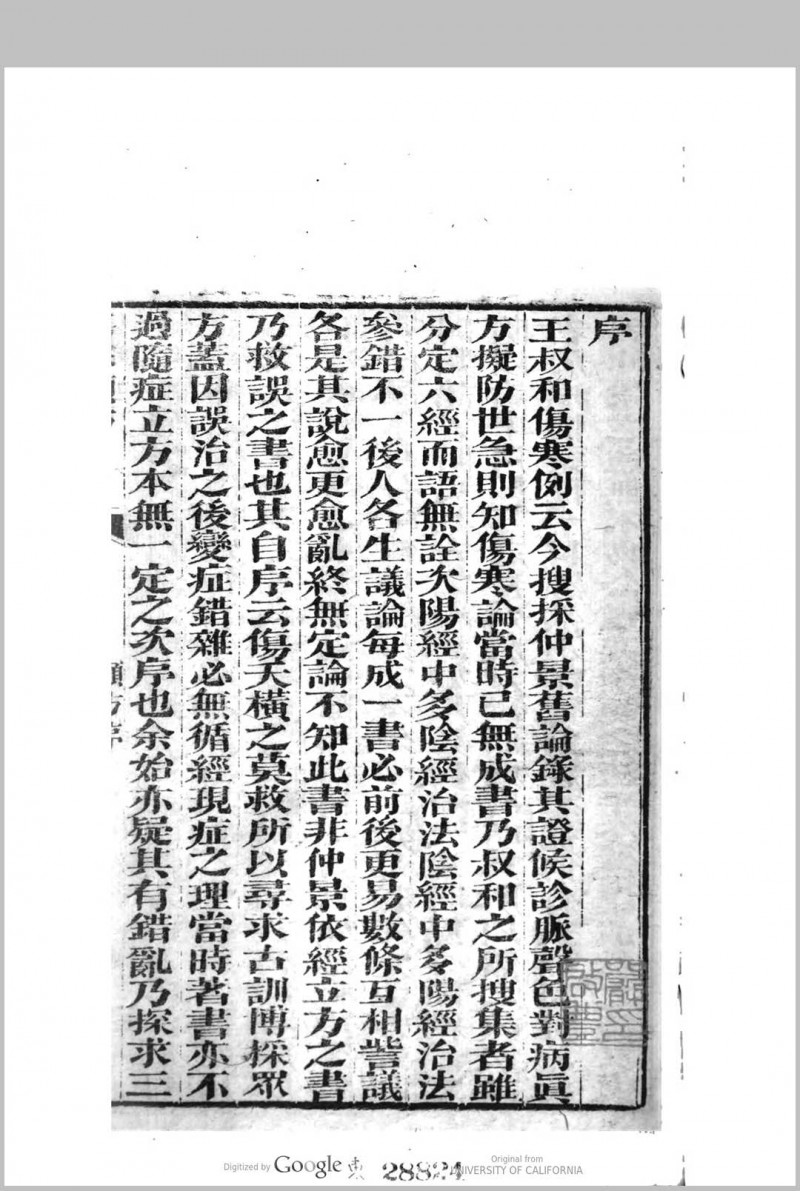 序
王叔和傷寒例云今搜採仲景舊論錄其證候診脈聲色對病眞
方擬防世急則知傷寒論當時已無成書乃叔和之所搜集者雖
分定六經而語無詮次陽經中多陰經治法陰經中多陽經治法
參錯不一後人各生議論每成一書必前後更易數條互相訾議
各是其說愈更愈亂終無定論不知此書非仲景依經立方之書
乃救誤之書也其自序云傷夭橫之莫救所以尋求古訓博採眾
方蓋因誤治之後變症錯雜必無循經現症之理當時著書亦不
過隨症立方本無一定之次序也余始亦疑其有錯亂乃探求三
類方序
Digitized by Google
28824
Original from
UNIVERSITY OF CALIFORNIA